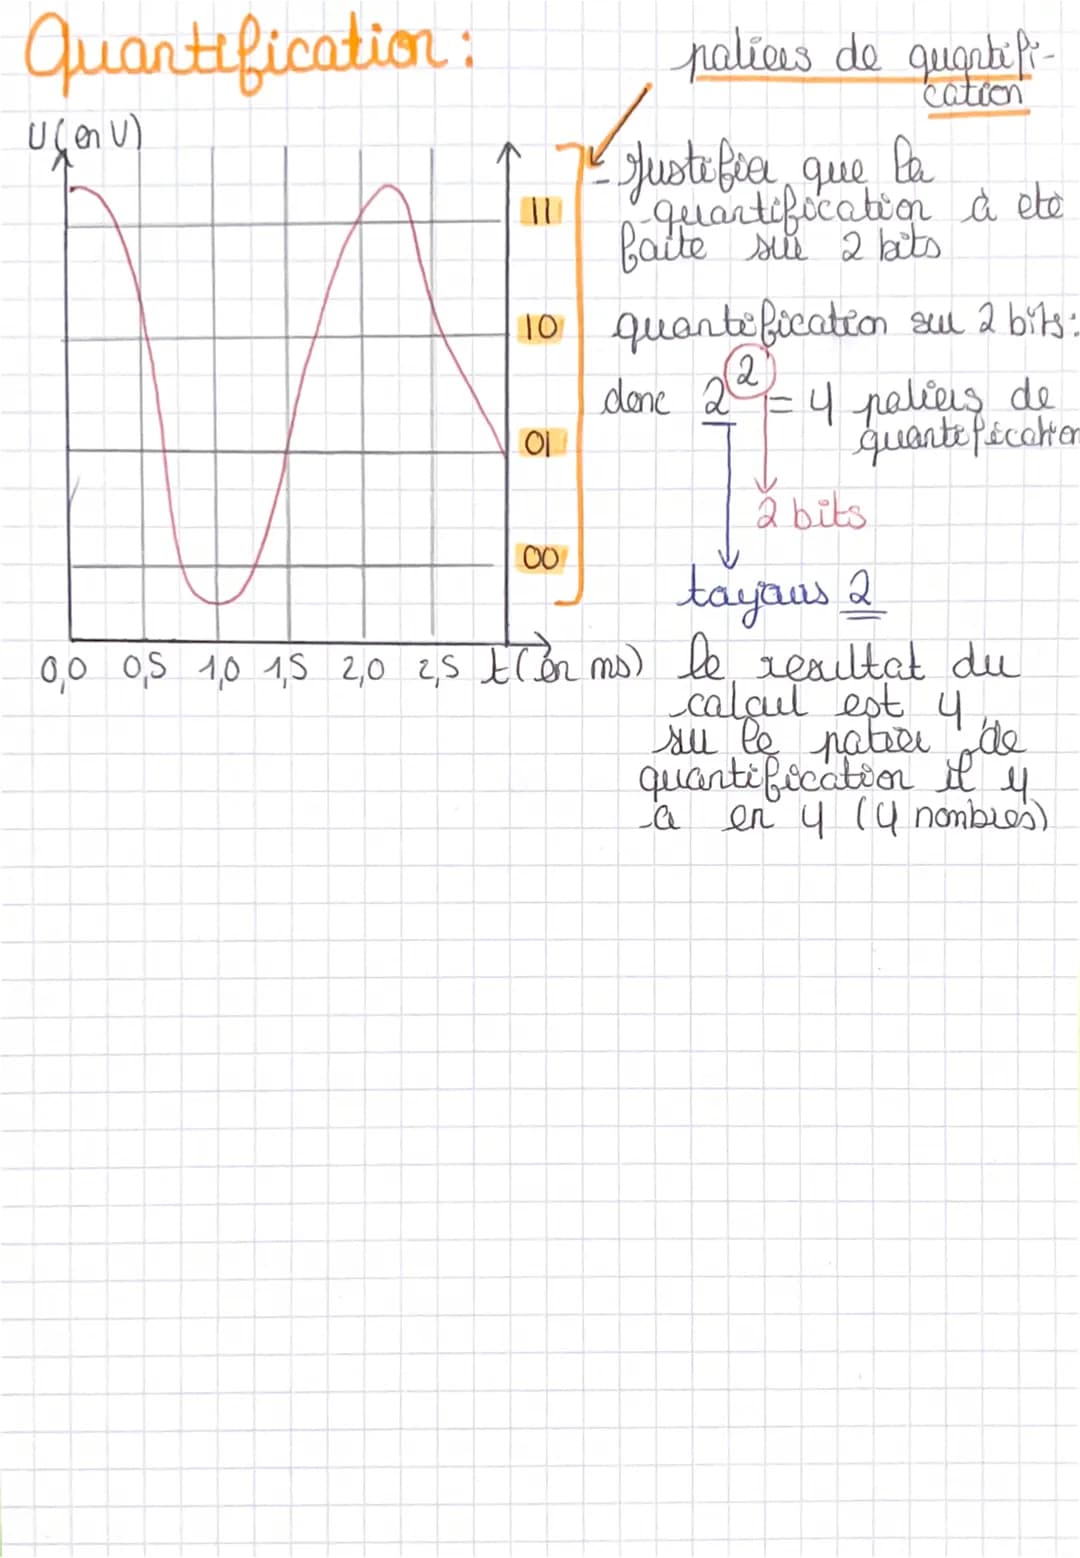 Quantification :
paliers de quantifi-
cation
U (en V)
- Justifier que la
quantification à eté
faite sur 2 bits
11
10
01
00
quantification sur 2 bits :
donc 2² = 4 paliers de
quantification
2 bits
toujours 2
0,0 0,5 1,0 1,5 2,0 2,5 t (en ms)
le resultat du
calcul est 4
su le palier de
quantification il y
a en 4 (4 nombres)